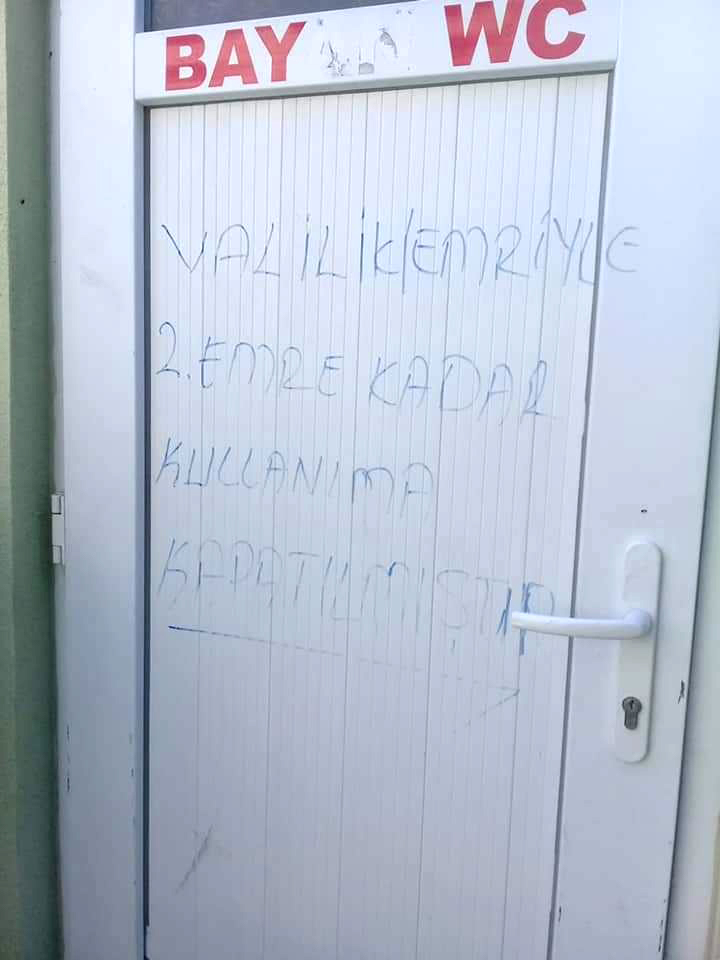 BAY WC
VALİLİK EMRİYLE
2. EMRE KADAR
KULLANIMA
KAPATILMIŞTIR